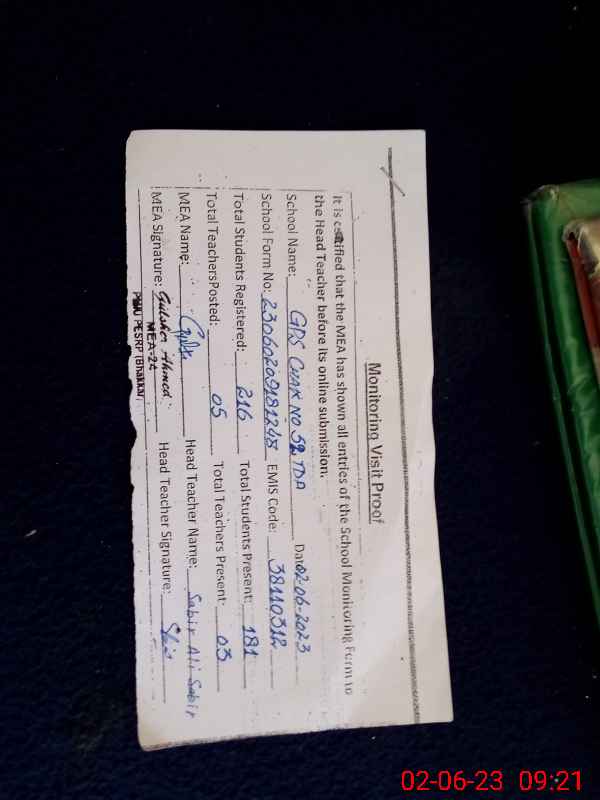 Monitoring Visit Proof
It is certified that the MEA has shown all entries of the School Monitoring Form to
the Head Teacher before its online submission.
School Name: GPS CHAK NO 52 TDA Date 02-06-2023
School Form No: 23060209181248 EMIS Code: 38110312
Total Students Registered: 216 Total Students Present: 181
Total Teachers Posted: 05 Total Teachers Present: 03
MEA Name: Head Teacher Name: Sabir Ali Sabir
MEA Signature: Gulsher Ahmed Head Teacher Signature:
MEA-24
PMIU PESRP (Bhakkar)
02-06-23 09:21